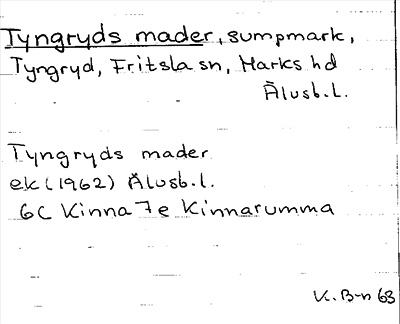 Tyngryds mader, sumpmark,
Tyngryd, Fritsla sn, Marks hd
Älvsb. l.
Tyngryds mader
ek (1962) Älvsb. l.
6C Kinna 7e Kinnarumma
K. B-n 63